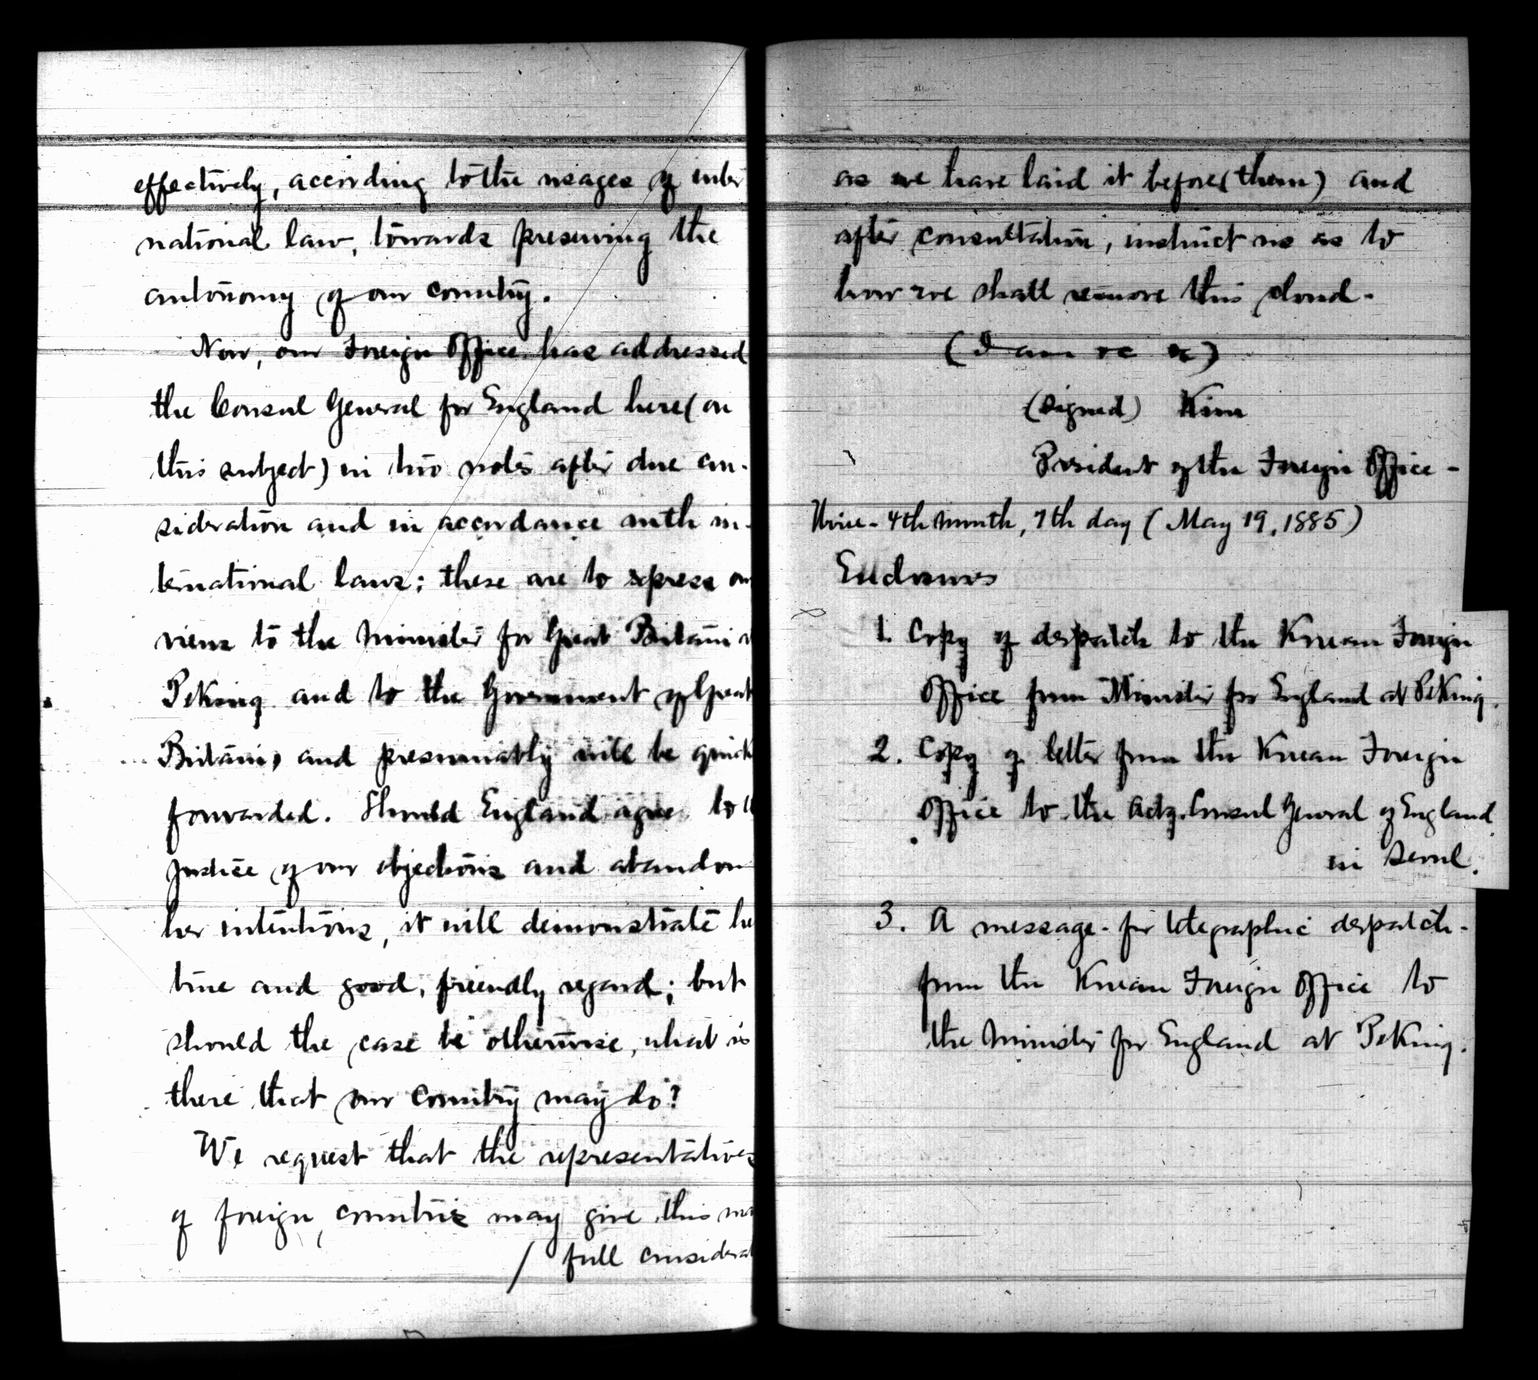 effectively, according to the usages of inter
national law, towards preserving the
autonomy of our country.
Now, our Foreign Office has addressed
the Consul General for England here (on
this subject) in two notes after due con-
sideration and in accordance with in-
ternational laws; these are to express our
views to the Minister for Great Britain
Peking and to the Government of Great
Britain, and presumably will be quick
forwarded. Should England agree to
justice of our objections and abandon
her intentions, it will demonstrate he
true and good, friendly regard; but
should the case be otherwise, what is
there that our Country may do?
We request that the representatives
of foreign countries may give this
/ full considerat
as we have laid it before (them) and
after consultation, instruct us as to
how we shall remove this cloud.
(I am &c &c)
(signed) Kim
President of the Foreign Office -
4th month, 7th day (May 19, 1885)
Enclosures
1. Copy of despatch to the Korean Foreign
Office from Minister for England at Peking.
2. Copy of letter from the Korean Foreign
Office to the Actg. Consul General of England
in Seoul.
3. A message - for telegraphic despatch -
from the Korean Foreign Office to
the Minister for England at Peking.